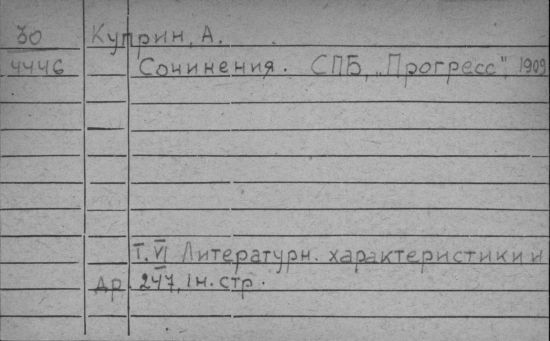 30 Куприн, А.
4446 Сочинения. СПБ, „Прогресс", 1909
Т. VI Литературн. характеристики и
др. 247, 1 н. стр.